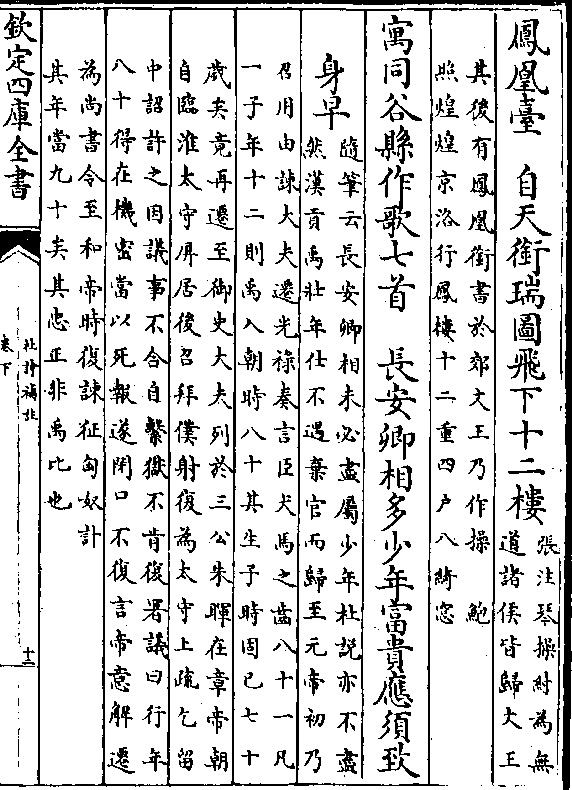 鳳凰臺　自天銜瑞圖飛下十二樓張注琴操紂為無
道諸侯皆歸文王
其後有鳳凰銜書於郊文王乃作操　鮑
照煌煌京洛行鳳樓十二重四户八綺窓
寓同谷縣作歌七首　長安卿相多少年富貴應須致
身早隨筆云長安卿相未必盡屬少年杜説亦不盡
然漢貢禹壯年仕不遇棄官而歸至元帝初乃
召用由諫大夫遷光禄奏言臣犬馬之齒八十一凡
一子年十二則禹入朝時八十其生子時固已七十
歲矣竟再遷至御史大夫列於三公朱暉在章帝朝
自臨淮太守屏居後召拜僕射復為太守上疏乞留
中詔許之因議事不合自繫獄不肯復署議曰行年
八十得在機密當以死報遂閉口不復言帝意解遷
為尚書令至和帝時復諫征匈奴計
其年當九十矣其忠正非禹比也
欽定四庫全書
杜詩補註
卷下
十二